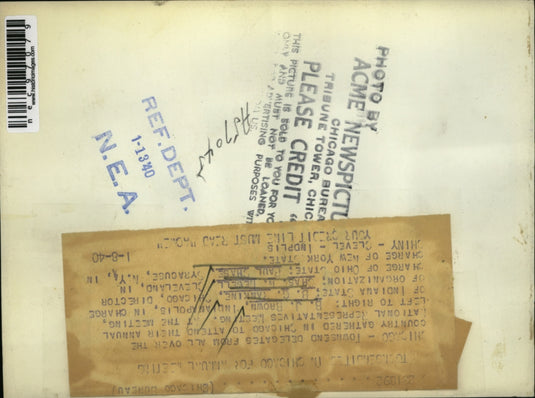 PHOTO BY
ACME NEWSPICTU
CHICAGO BUREA
TRIBUNE TOWER, CHIC
PLEASE CREDIT "
THIS PICTURE IS SOLD TO YOU FOR YO
ONLY AND MUST NOT BE LOANED,
ADVERTISING PURPOSES WIT
REF. DEPT.
1-1340
N.E.A.
(CHICAGO BUREAU)
TOWNSENDITES IN CHICAGO FOR ANNUAL MEETING
CHICAGO - TOWNSEND DELEGATES FROM ALL OVER THE
COUNTRY GATHERED IN CHICAGO TO ATTEND THEIR ANNUAL
NATIONAL REPRESENTATIVES MEETING. THE MEETING,
LEFT TO RIGHT: B. J. BROWN, INDIANAPOLIS, IN CHARGE
OF INDIANA STATE; CHICAGO, DIRECTOR
OF ORGANIZATION; CLEVELAND, IN
CHARGE OF OHIO STATE; PAUL CHASE, SYRACUSE, N.Y., IN
CHARGE OF NEW YORK STATE.
CHINY - CLEVEL - INDPLIS
YOUR CREDIT LINE MUST READ "ACME"
1-8-40